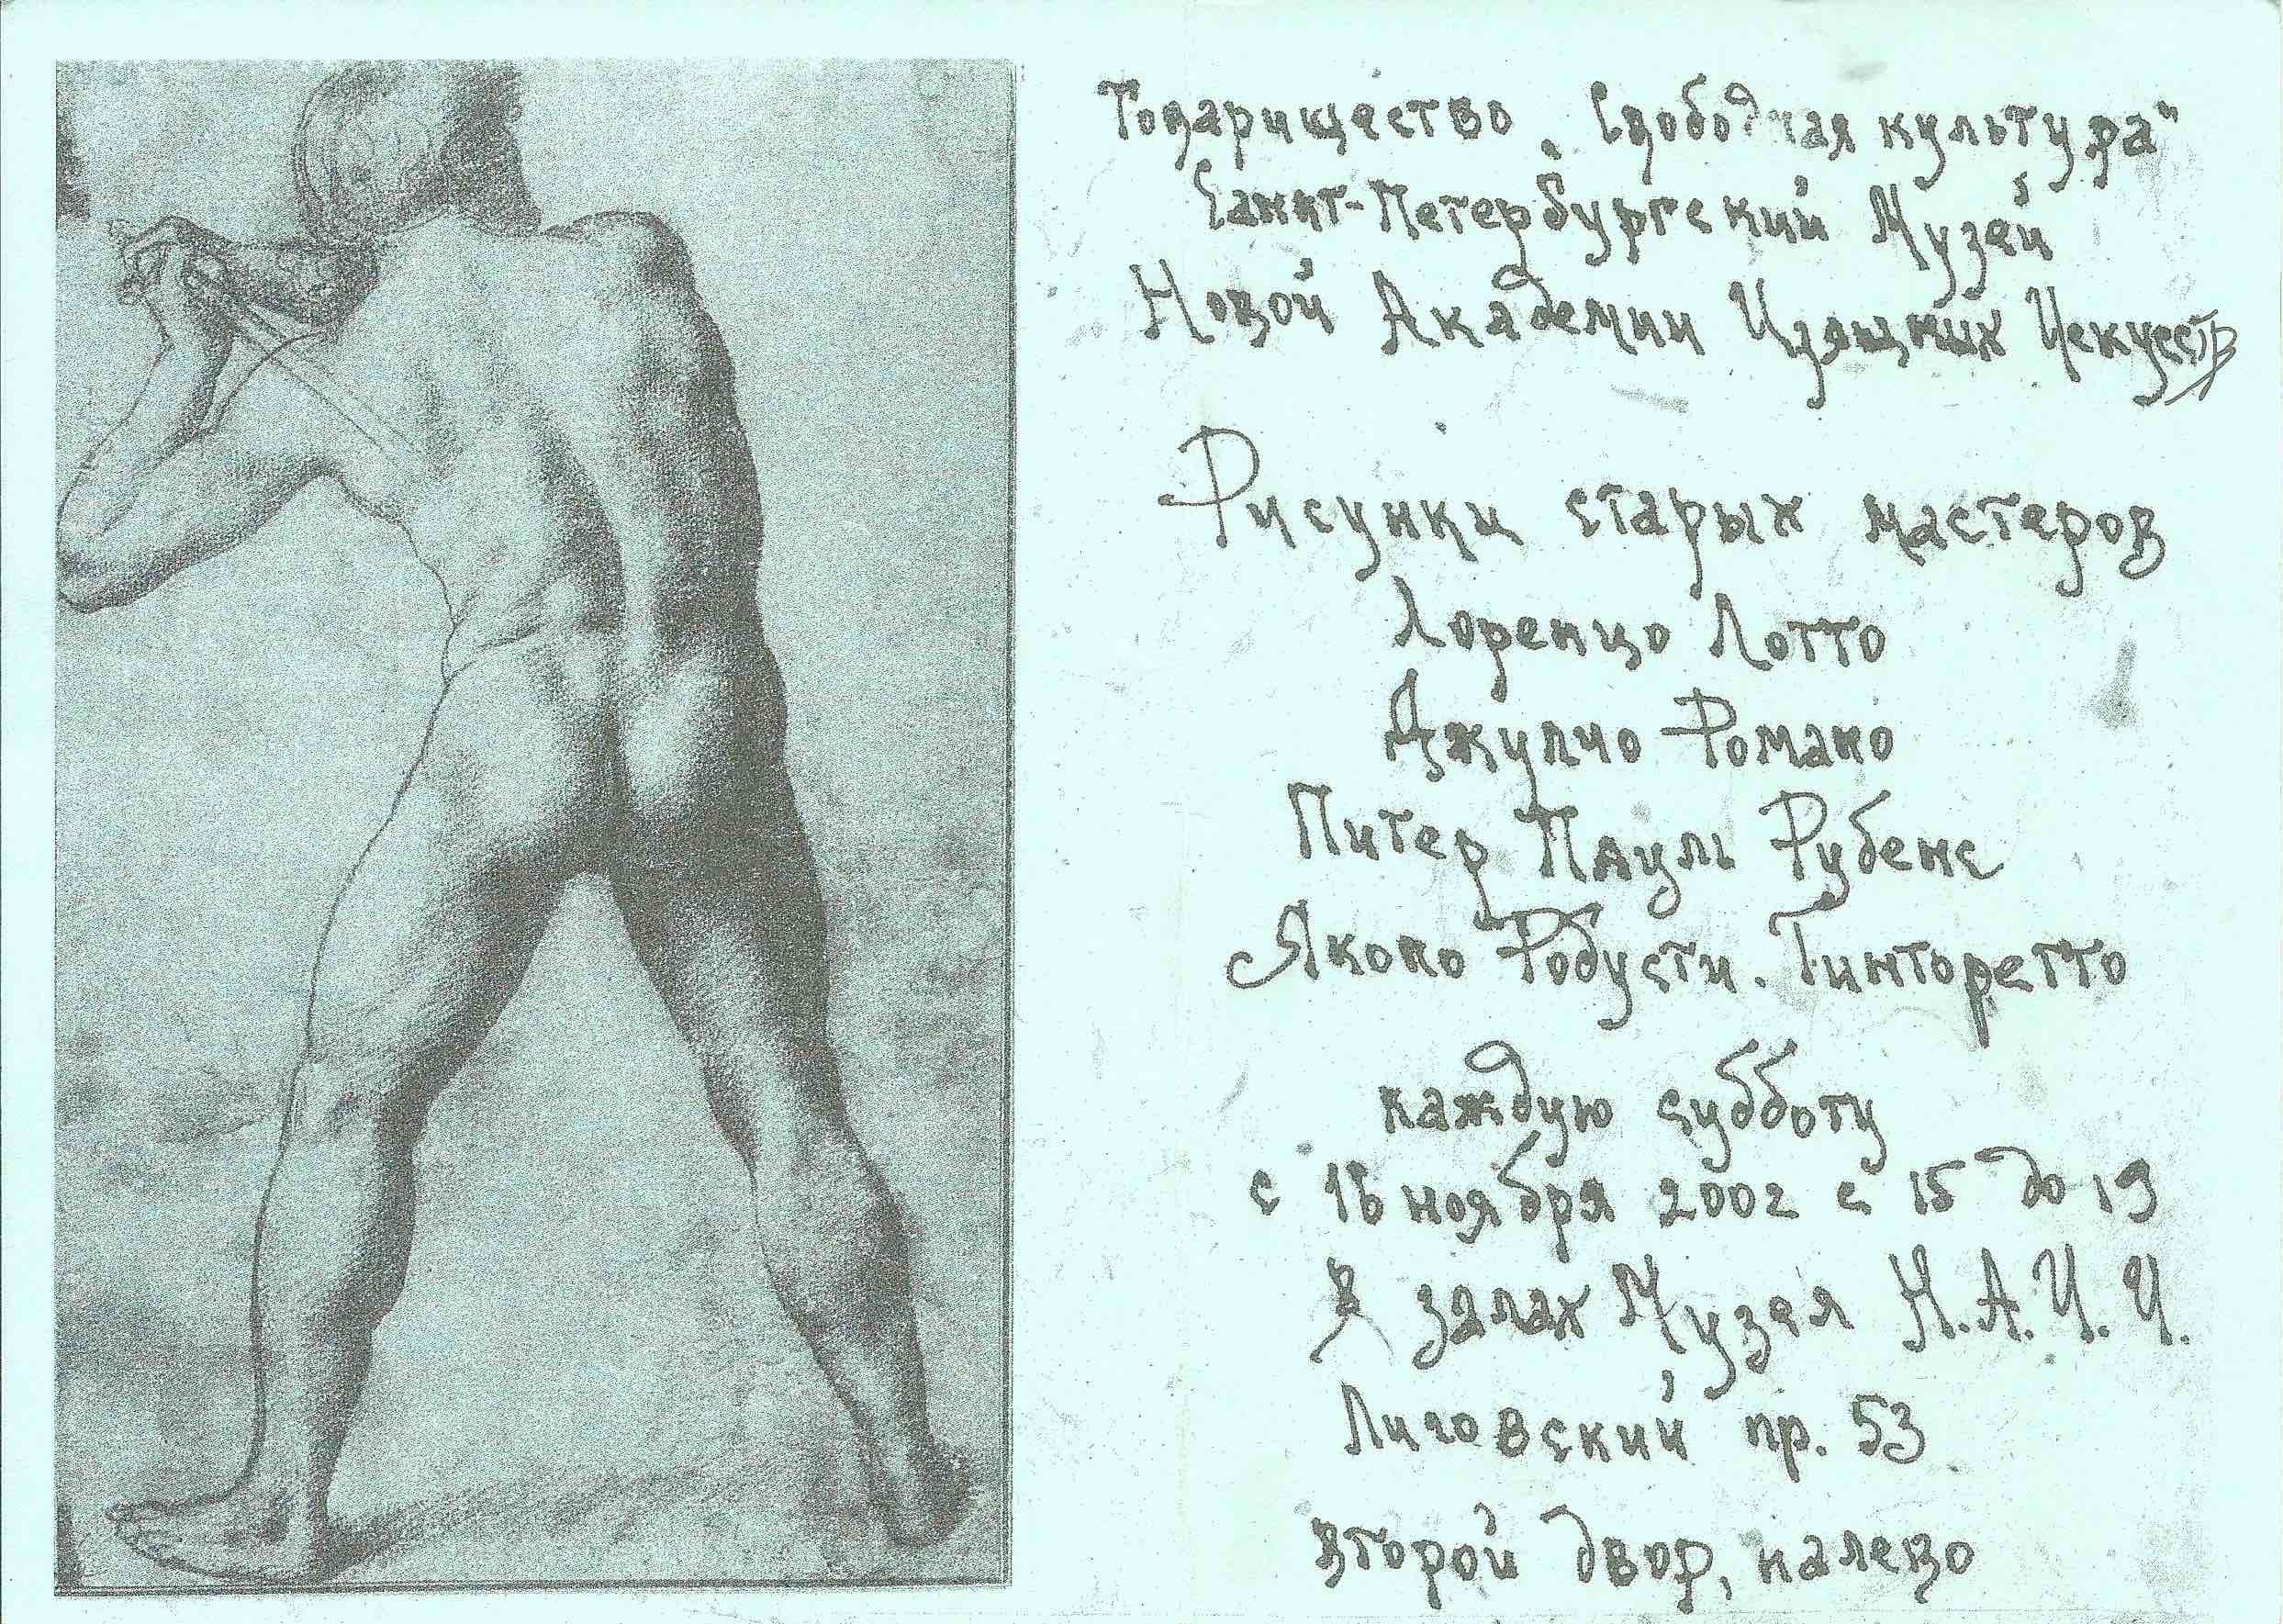 Товарищество „Свободная культура"
Санкт-Петербургский Музей
Новой Академии Изящных Искусств
Рисунки старых мастеров
Лоренцо Лотто
Джулио Романо
Питер Пауль Рубенс
Якопо Робусти. Тинторетто
каждую субботу
с 16 ноября 2002 с 15 до 19
в залах Музея Н.А.И.И.
Лиговский пр. 53
второй двор, налево